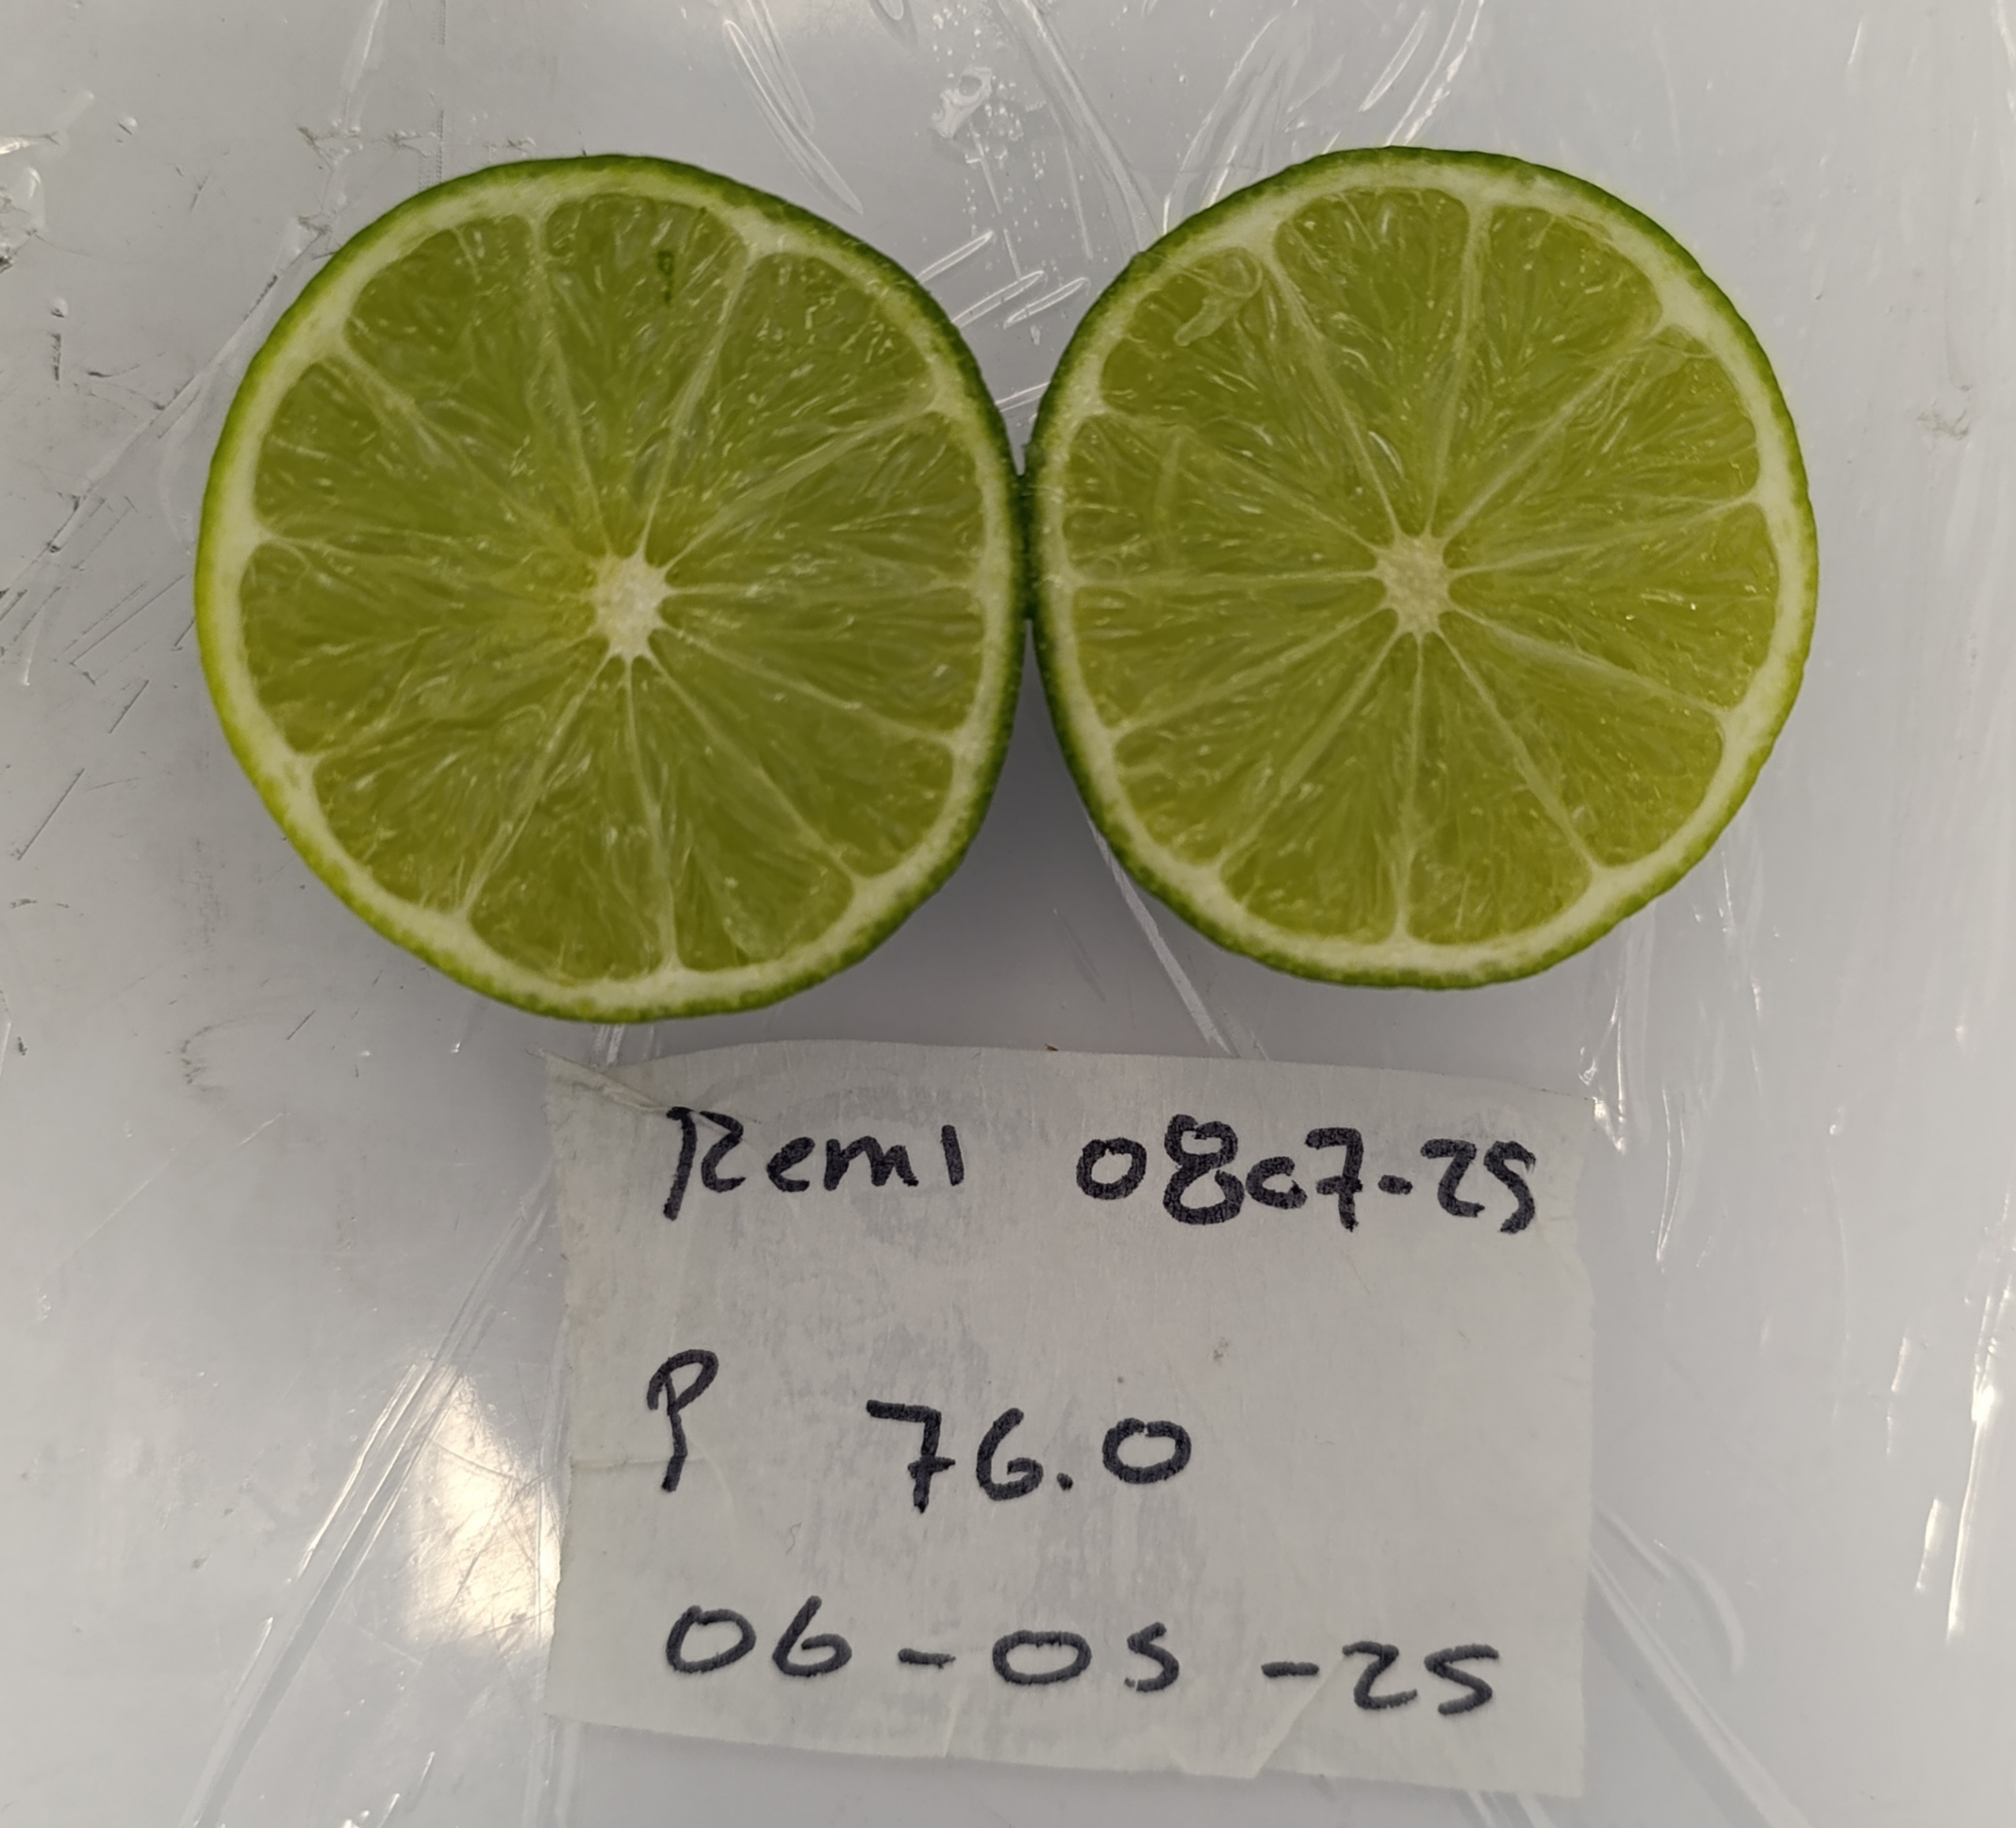 Remi 0807-25
P 76.0
06-05-25